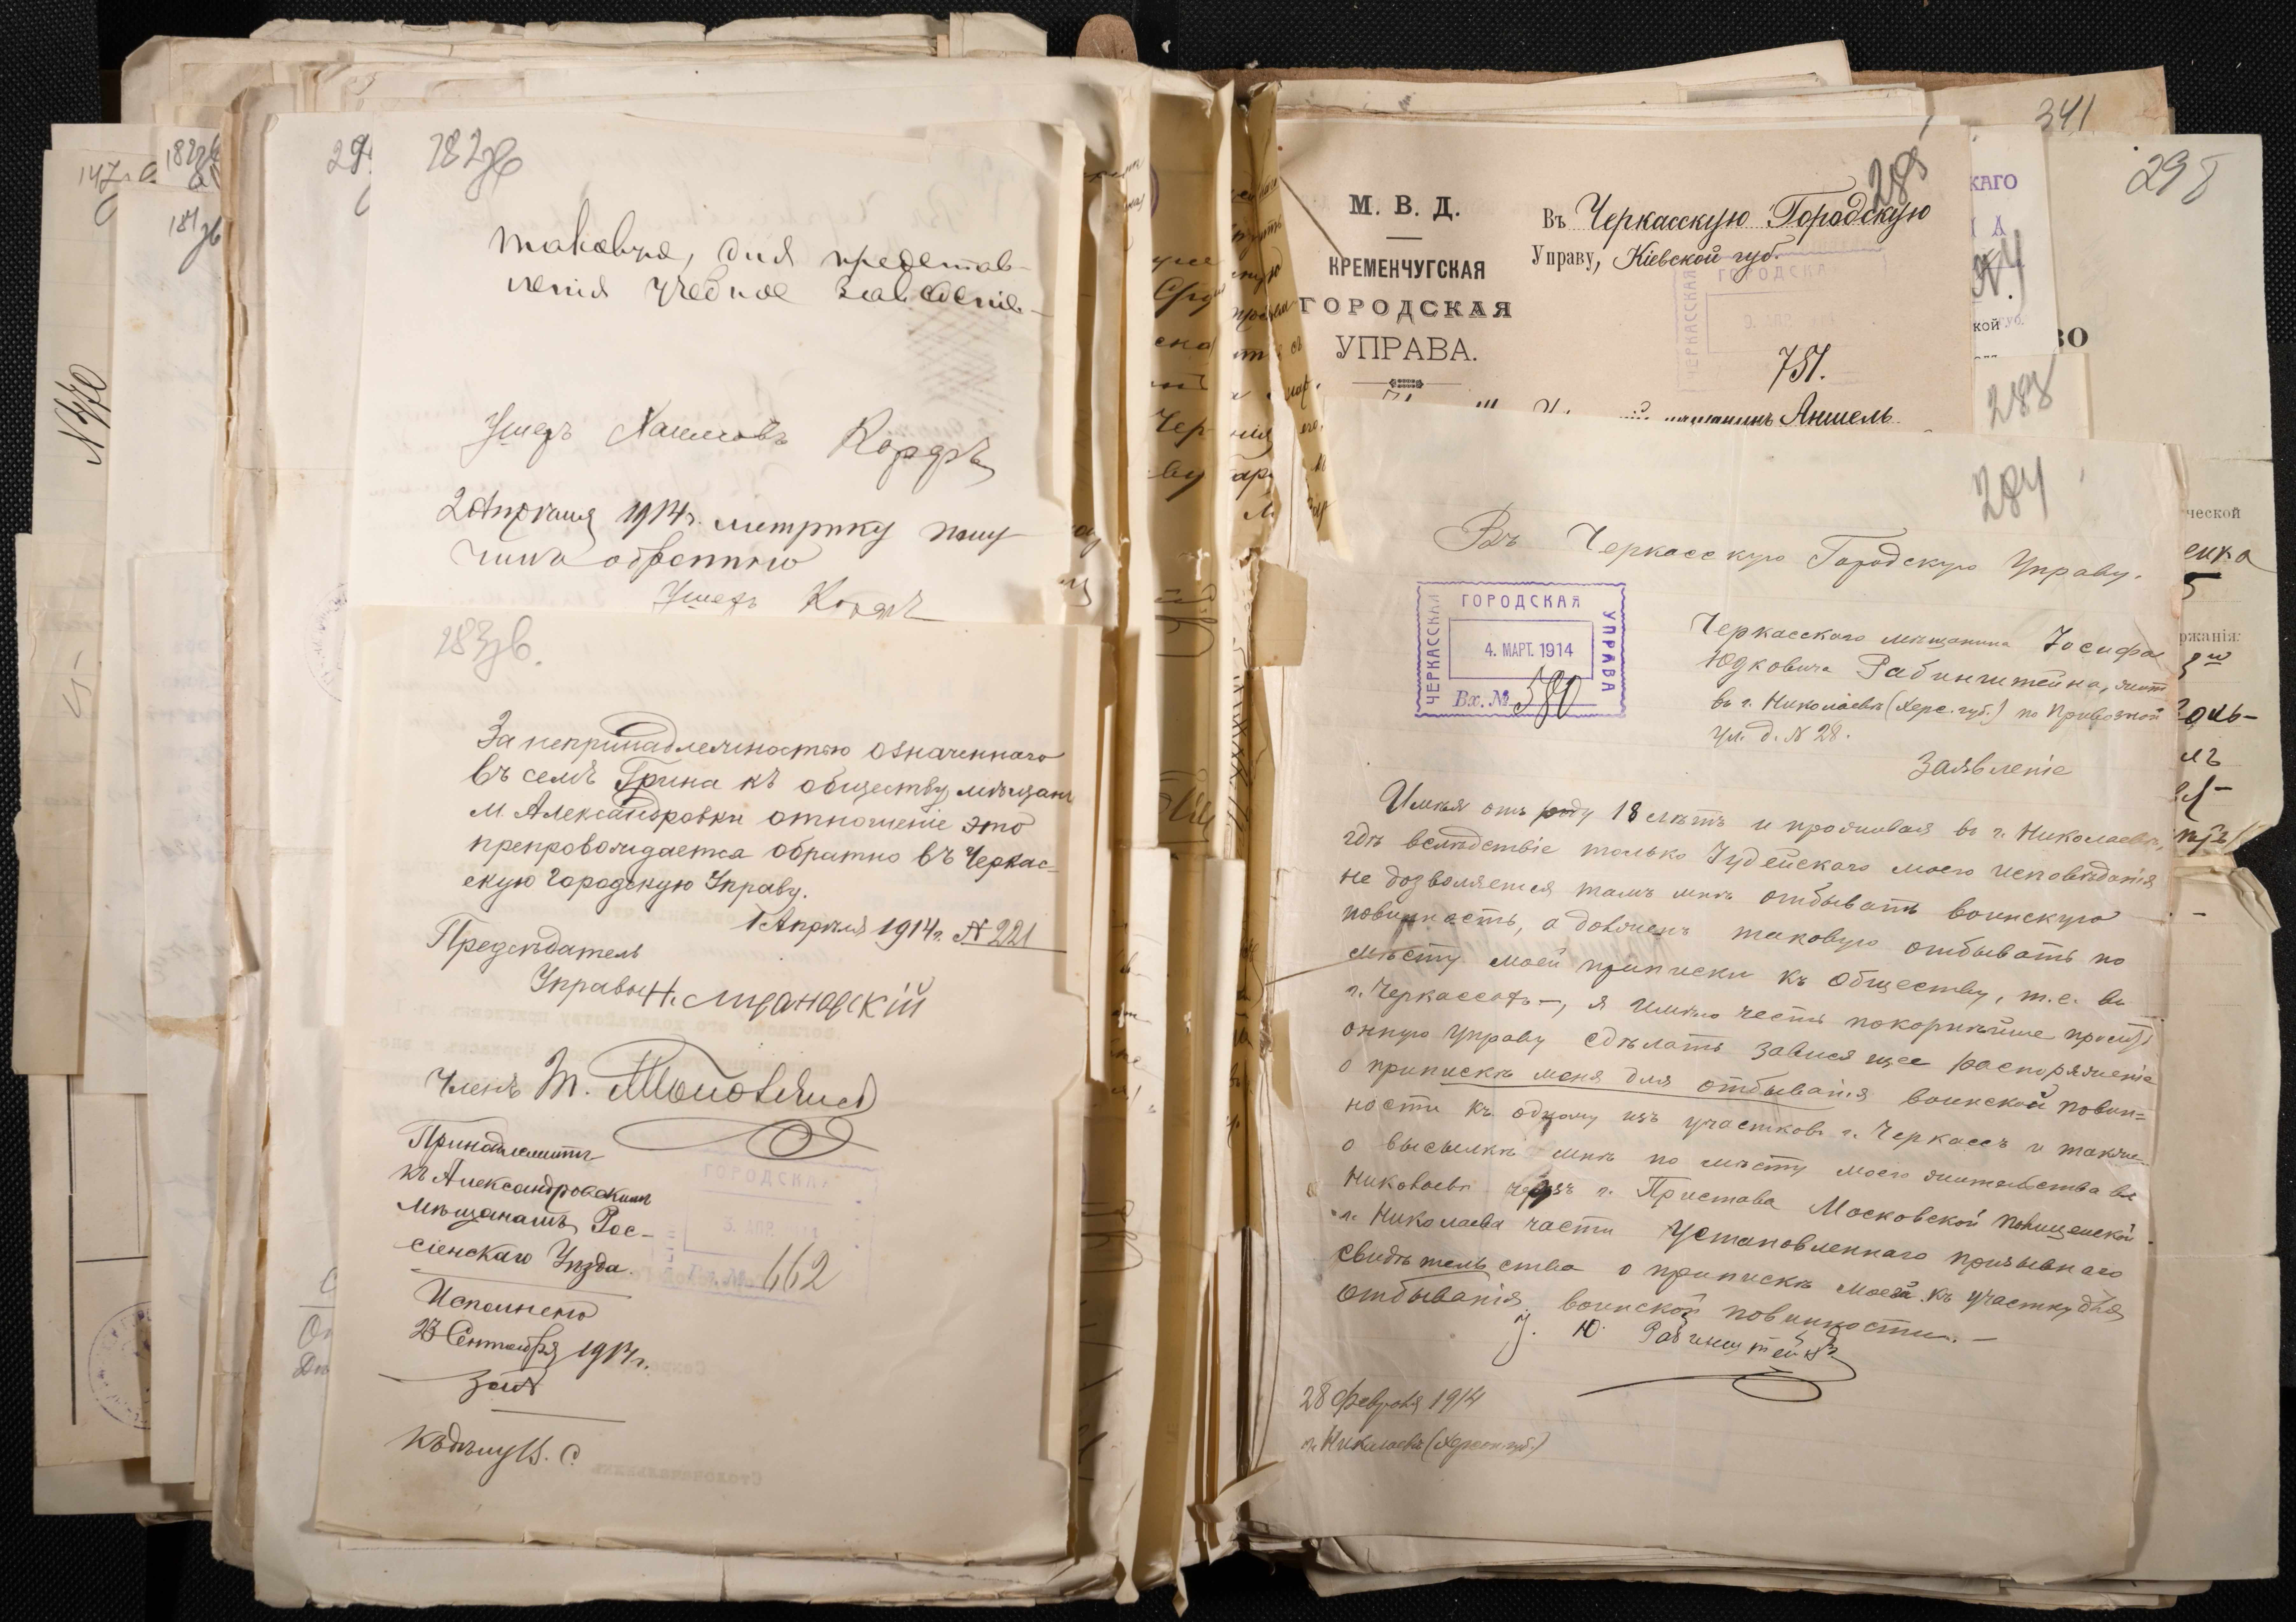 147
182
181
N 370
282
таковую, для представ-
ленія учебное заведеніе
Ушеръ Хаимовъ Кордъ
2 Апрѣля 1914 г. метрику полу
чилъ обратно
Ушеръ Кордъ
283
За непринадлежностью означеннаго
въ семъ Грина къ обществу мѣщанъ
м. Александровки отношеніе это
препровождается обратно въ Черкас-
скую Городскую Управу.
1 Апрѣля 1914 г. N 221
Предсѣдатель
Управы Н.
Членъ
Принадлежитъ
къ Александровскимъ
мѣщанамъ, Рос-
сіенскаго Уѣзда.
ГОРОДСКАЯ
3. АПР.
662
Исполнено
23 Сентября 1914 г.
Къ дѣлу
341
298
М. В. Д.
КРЕМЕНЧУГСКАЯ
ГОРОДСКАЯ
УПРАВА.
285
Въ Черкасскую Городскую
Управу, Кіевской губ.
ЧЕРКАССКАЯ
ГОРОДСКАЯ
751.
Аншель
КАГО
288
284
Въ Черкасскую Городскую Управу.
ЧЕРКАССКАЯ
ГОРОДСКАЯ
УПРАВА
4. МАРТ. 1914
Вх. № 580
Черкасскаго мѣщанина Іосифа
Юдковича Рабинштейна, жит
въ г. Николаевѣ (Херс. губ.) по Привозной
ул. д. N 28.
Заявленіе
Имѣя отъ роду 18 лѣтъ и проживая въ г. Николаевѣ,
гдѣ вслѣдствіе только Іудейскаго моего исповѣданія
не дозволяется тамъ мнѣ отбывать воинскую
повинность, а долженъ таковую отбывать по
мѣсту моей приписки къ обществу, т.е. въ
г. Черкассахъ –, я имѣю честь покорнѣйше просить
онную Управу сдѣлать зависящее распоряженіе
о припискѣ меня для отбыванія воинской повин=
ности къ одному изъ участковъ г. Черкассъ и также
о высылкѣ мнѣ по мѣсту моего жительства въ
Николаевѣ черезъ г. Пристава Московской полицейской
г. Николаева части установленнаго призывнаго
свидѣтельства о припискѣ моей къ участку для
отбыванія воинской повинности. –
І. Ю. Рабинштейнъ
28 Февраля 1914
г. Николаевъ (Херсон. губ.)
ческой
ржанія: